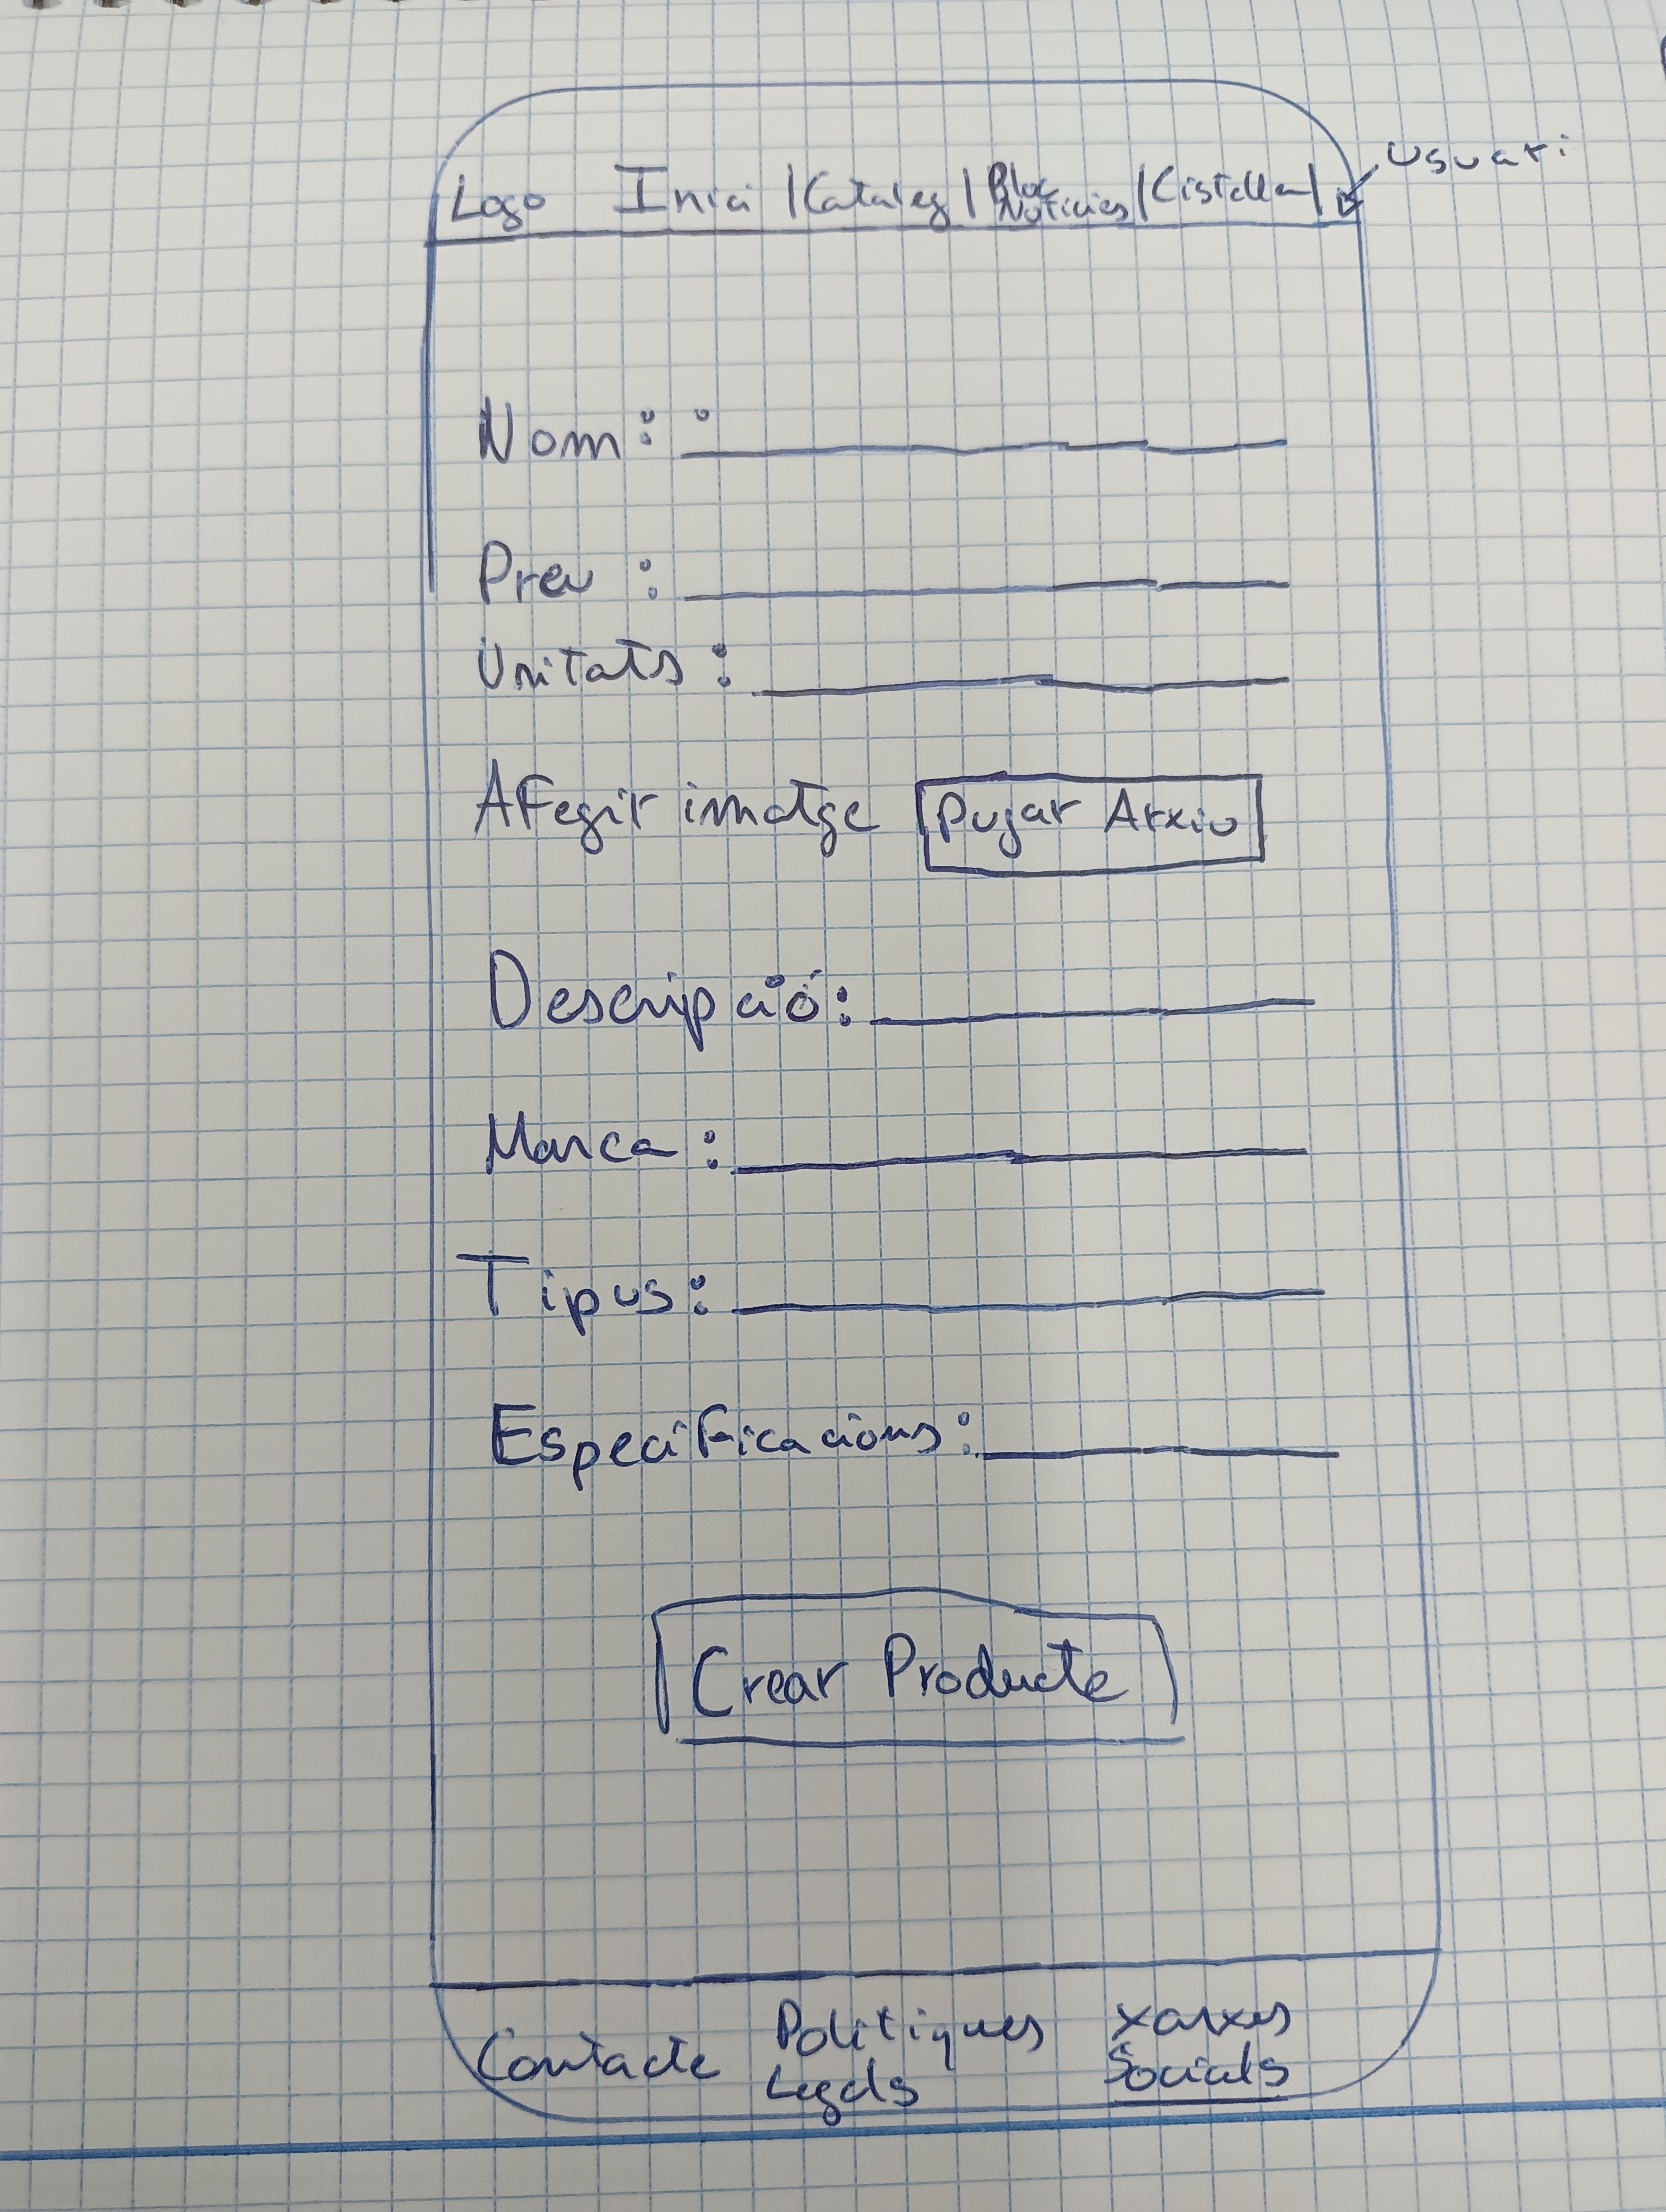 Usuari
Logo Inici | Catàleg | Bloc Notícies | Cistella |
Nom:
Preu :
Unitats :
Afegir imatge Pujar Arxiu
Descripció:
Marca :
Tipus:
Especificacions:
Crear Producte
Contacte Polítiques Legals Xarxes Socials